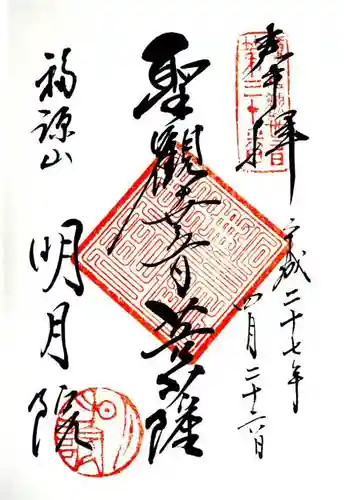 奉拝
平成二十七年
四月二十六日
聖観世音菩薩
福源山
明月院